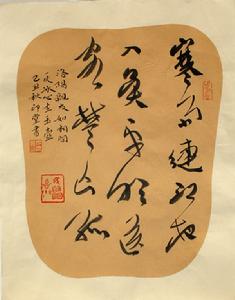 寒雨連江夜
入吳平明送
客楚山孤
洛陽親友如相問
一片冰心在玉壺